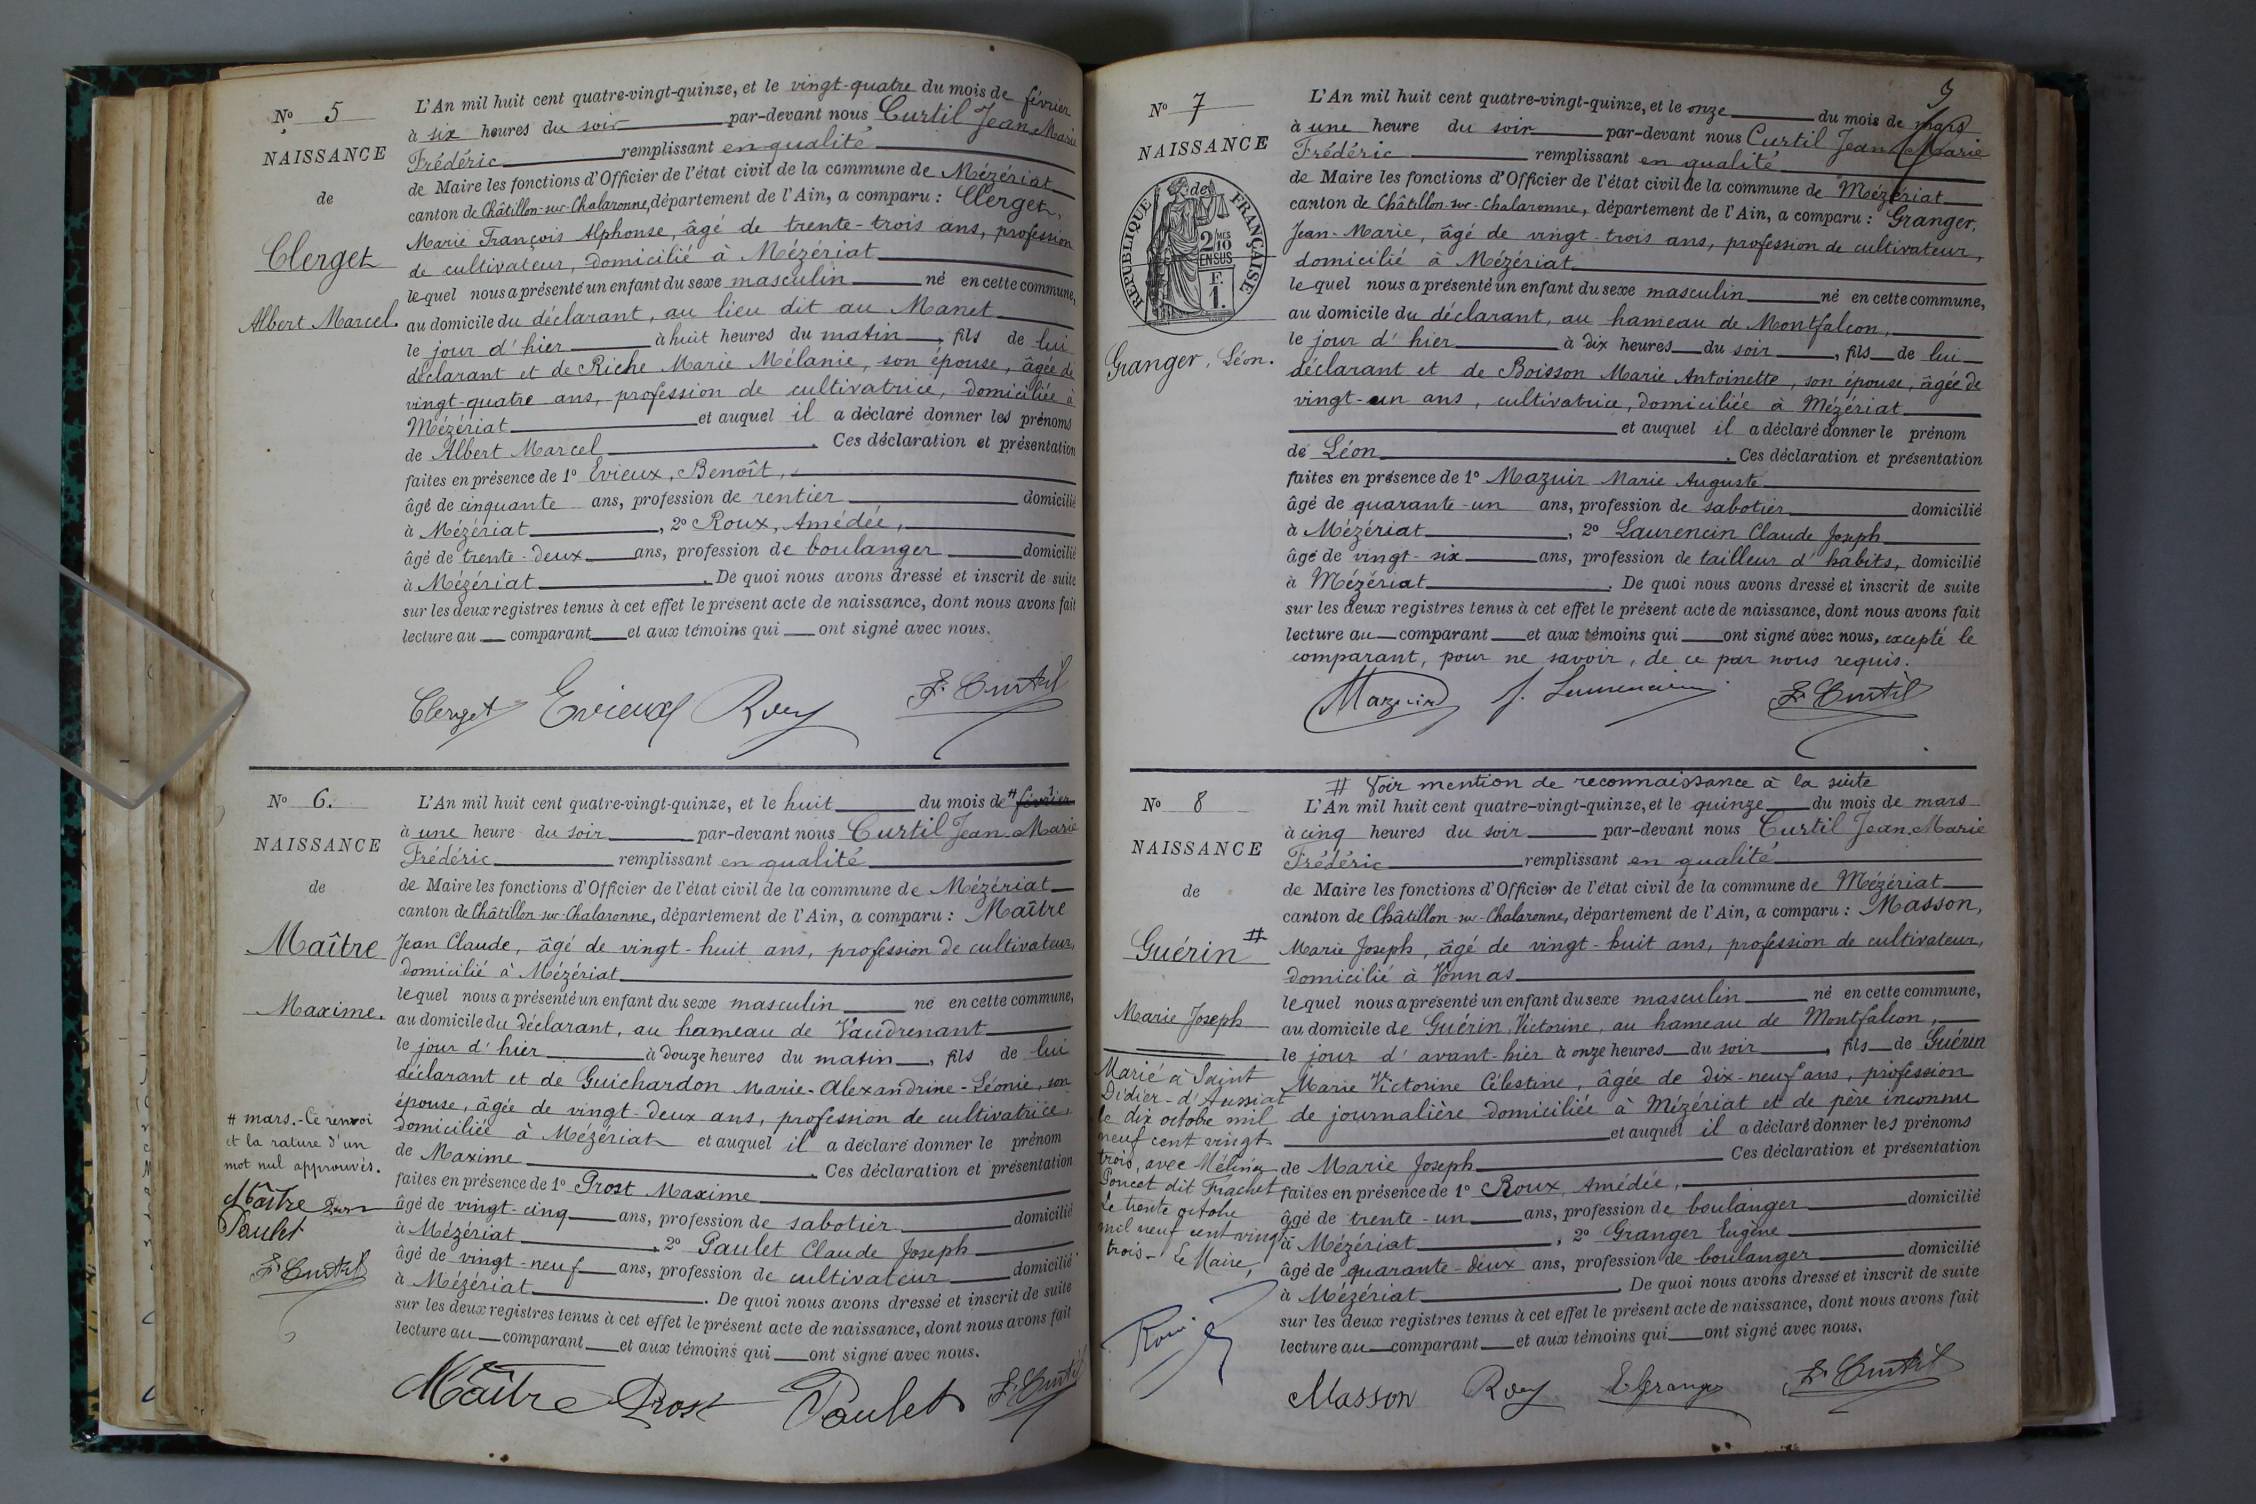 N° 5
NAISSANCE
de
Clerget
Albert Marcel.
L'An mil huit cent quatre-vingt-quinze, et le vingt-quatre du mois de février
à six heures du soir par-devant nous Curtil Jean-Marie
Frédéric remplissant en qualité
de Maire les fonctions d'Officier de l'état civil de la commune de Mézériat
canton de Châtillon-sur-Chalaronne, département de l'Ain, a comparu : Clerget,
Marie François Alphonse, âgé de trente-trois ans, profession
de cultivateur, domicilié à Mézériat
lequel nous a présenté un enfant du sexe masculin né en cette commune,
au domicile du déclarant, au lieu dit au Manet
le jour d'hier à huit heures du matin, fils de lui
déclarant et de Riche Marie Mélanie, son épouse, âgée de
vingt-quatre ans, profession de cultivatrice, domiciliée à
Mézériat et auquel il a déclaré donner les prénoms
de Albert Marcel. Ces déclaration et présentation
faites en présence de 1° Evieux, Benoît,
âgé de cinquante ans, profession de rentier domicilié
à Mézériat, 2° Roux, Amédée,
âgé de trente-deux ans, profession de boulanger domicilié
à Mézériat. De quoi nous avons dressé et inscrit de suite
sur les deux registres tenus à cet effet le présent acte de naissance, dont nous avons fait
lecture au comparant et aux témoins qui ont signé avec nous.
Clerget Evieux Roux F. Curtil
N° 6.
NAISSANCE
de
Maître
Maxime.
# mars. - Ce renvoi
et la rature d'un
mot nul approuvés.
Maître Prost
Paulet
F. Curtil
L'An mil huit cent quatre-vingt-quinze, et le huit du mois de # février
à une heure du soir par-devant nous Curtil Jean-Marie
Frédéric remplissant en qualité
de Maire les fonctions d'Officier de l'état civil de la commune de Mézériat
canton de Châtillon-sur-Chalaronne, département de l'Ain, a comparu : Maître
Jean Claude, âgé de vingt-huit ans, profession de cultivateur,
domicilié à Mézériat
lequel nous a présenté un enfant du sexe masculin né en cette commune,
au domicile du déclarant, au hameau de Vaudrenant
le jour d'hier à douze heures du matin, fils de lui
déclarant et de Guichardon Marie-Alexandrine-Léonie, son
épouse, âgée de vingt-deux ans, profession de cultivatrice,
domiciliée à Mézériat et auquel il a déclaré donner le prénom
de Maxime. Ces déclaration et présentation
faites en présence de 1° Prost Maxime
âgé de vingt-cinq ans, profession de sabotier domicilié
à Mézériat, 2° Paulet Claude Joseph
âgé de vingt-neuf ans, profession de cultivateur domicilié
à Mézériat. De quoi nous avons dressé et inscrit de suite
sur les deux registres tenus à cet effet le présent acte de naissance, dont nous avons fait
lecture au comparant et aux témoins qui ont signé avec nous.
Maître Prost Paulet F. Curtil
N° 7
NAISSANCE
de
RÉPUBLIQUE FRANÇAISE
2 MES 10
EN SUS
F.
1.
Granger, Léon.
L'An mil huit cent quatre-vingt-quinze, et le onze du mois de mars
à une heure du soir par-devant nous Curtil Jean-Marie
Frédéric remplissant en qualité
de Maire les fonctions d'Officier de l'état civil de la commune de Mézériat
canton de Châtillon-sur-Chalaronne, département de l'Ain, a comparu : Granger,
Jean-Marie, âgé de vingt-trois ans, profession de cultivateur,
domicilié à Mézériat
lequel nous a présenté un enfant du sexe masculin né en cette commune,
au domicile du déclarant, au hameau de Montfalcon,
le jour d'hier à dix heures du soir, fils de lui
déclarant et de Boisson Marie Antoinette, son épouse, âgée de
vingt-un ans, cultivatrice, domiciliée à Mézériat
et auquel il a déclaré donner le prénom
de Léon. Ces déclaration et présentation
faites en présence de 1° Mazuir Marie Auguste
âgé de quarante-un ans, profession de sabotier domicilié
à Mézériat, 2° Laurencin Claude Joseph
âgé de vingt-six ans, profession de tailleur d'habits, domicilié
à Mézériat. De quoi nous avons dressé et inscrit de suite
sur les deux registres tenus à cet effet le présent acte de naissance, dont nous avons fait
lecture au comparant et aux témoins qui ont signé avec nous, excepté le
comparant, pour ne savoir, de ce par nous requis.
Mazuir J. Laurencin F. Curtil
# Voir mention de reconnaissance à la suite
N° 8
NAISSANCE
de
Guérin #
Marie Joseph
Marié à Saint
Didier-d'Aussiat
le dix octobre mil
neuf cent vingt
trois, avec Mélina
Poncet dit Frachet
Le trente octobre
mil neuf cent vingt
trois - Le Maire,
L'An mil huit cent quatre-vingt-quinze, et le quinze du mois de mars
à cinq heures du soir par-devant nous Curtil Jean-Marie
Frédéric remplissant en qualité
de Maire les fonctions d'Officier de l'état civil de la commune de Mézériat
canton de Châtillon-sur-Chalaronne, département de l'Ain, a comparu : Masson,
Marie Joseph, âgé de vingt-huit ans, profession de cultivateur,
domicilié à Vonnas
lequel nous a présenté un enfant du sexe masculin né en cette commune,
au domicile de Guérin, Victorine, au hameau de Montfalcon,
le jour d'avant-hier à onze heures du soir, fils de Guérin
Marie Victorine Célestine, âgée de dix-neuf ans, profession
de journalière domiciliée à Mézériat et de père inconnu
et auquel il a déclaré donner les prénoms
de Marie Joseph Ces déclaration et présentation
faites en présence de 1° Roux, Amédée,
âgé de trente-un ans, profession de boulanger domicilié
à Mézériat, 2° Granger Eugène
âgé de quarante-deux ans, profession de boulanger domicilié
à Mézériat. De quoi nous avons dressé et inscrit de suite
sur les deux registres tenus à cet effet le présent acte de naissance, dont nous avons fait
lecture au comparant et aux témoins qui ont signé avec nous.
Masson Roux E Granger F. Curtil